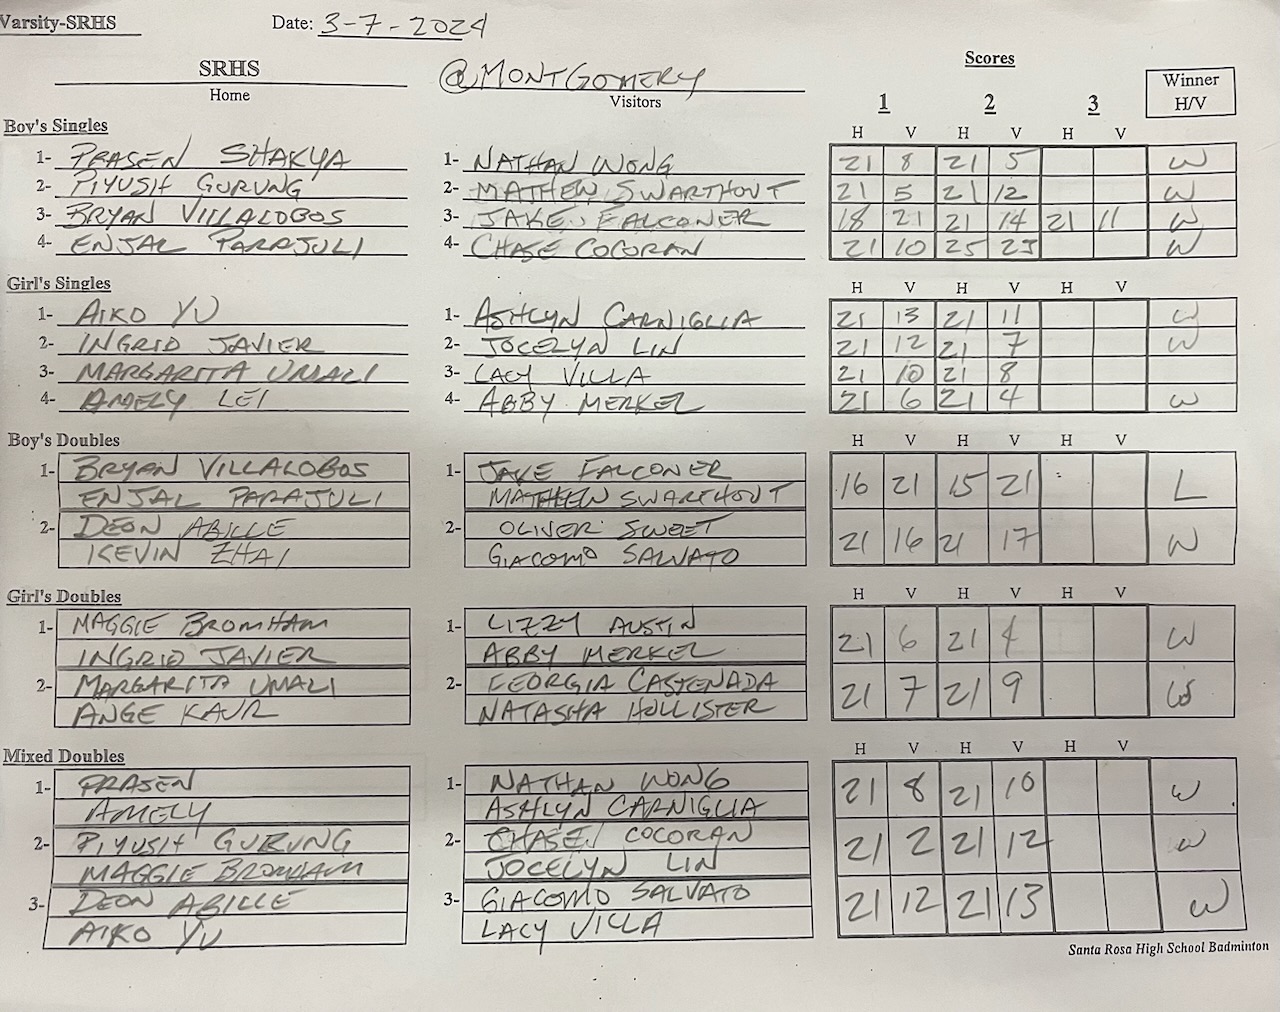 Varsity-SRHS Date: 3-7-2024
SRHS @MONTGOMERY Scores
Home Visitors 1 2 3 Winner H/V
Boy's Singles H V H V H V
1- PRASEN SHAKYA 1- NATHAN WONG 21 8 21 5 W
2- PIYUSH GURUNG 2- MATHEW SWARTHOUT 21 5 21 12 W
3- BRYAN VILLALOBOS 3- JAKE FALCONER 18 21 21 14 21 11 W
4- ENJAL PARAJULI 4- CHASE COCORAN 21 10 25 23 W
Girl's Singles H V H V H V
1- AIKO YU 1- ASHLYN CARNIGLIA 21 13 21 11 W
2- INGRID JAVIER 2- JOCELYN LIN 21 12 21 7 W
3- MARGARITA UMALI 3- LACY VILLA 21 10 21 8
4- AMELY LEI 4- ABBY MERKEL 21 6 21 4 W
Boy's Doubles H V H V H V
1- BRYAN VILLALOBOS 1- JAKE FALCONER 16 21 15 21 L
ENJAL PARAJULI MATHEW SWARTHOUT
2- DEON ABILLE 2- OLIVER SWEET 21 16 21 17 W
KEVIN ZHAI GIACOMO SALVATO
Girl's Doubles H V H V H V
1- MAGGIE BROMHAM 1- LIZZY AUSTIN 21 6 21 4 W
INGRID JAVIER ABBY MERKEL
2- MARGARITA UMALI 2- GEORGIA CASTENADA 21 7 21 9 W
ANGE KAUR NATASHA HOLLISTER
Mixed Doubles H V H V H V
1- PRASEN 1- NATHAN WONG 21 8 21 10 W
AMELY ASHLYN CARNIGLIA
2- PIYUSH GURUNG 2- CHASE COCORAN 21 2 21 12 W
MAGGIE BROMHAM JOCELYN LIN
3- DEON ABILLE 3- GIACOMO SALVATO 21 12 21 13 W
AIKO YU LACY VILLA
Santa Rosa High School Badminton